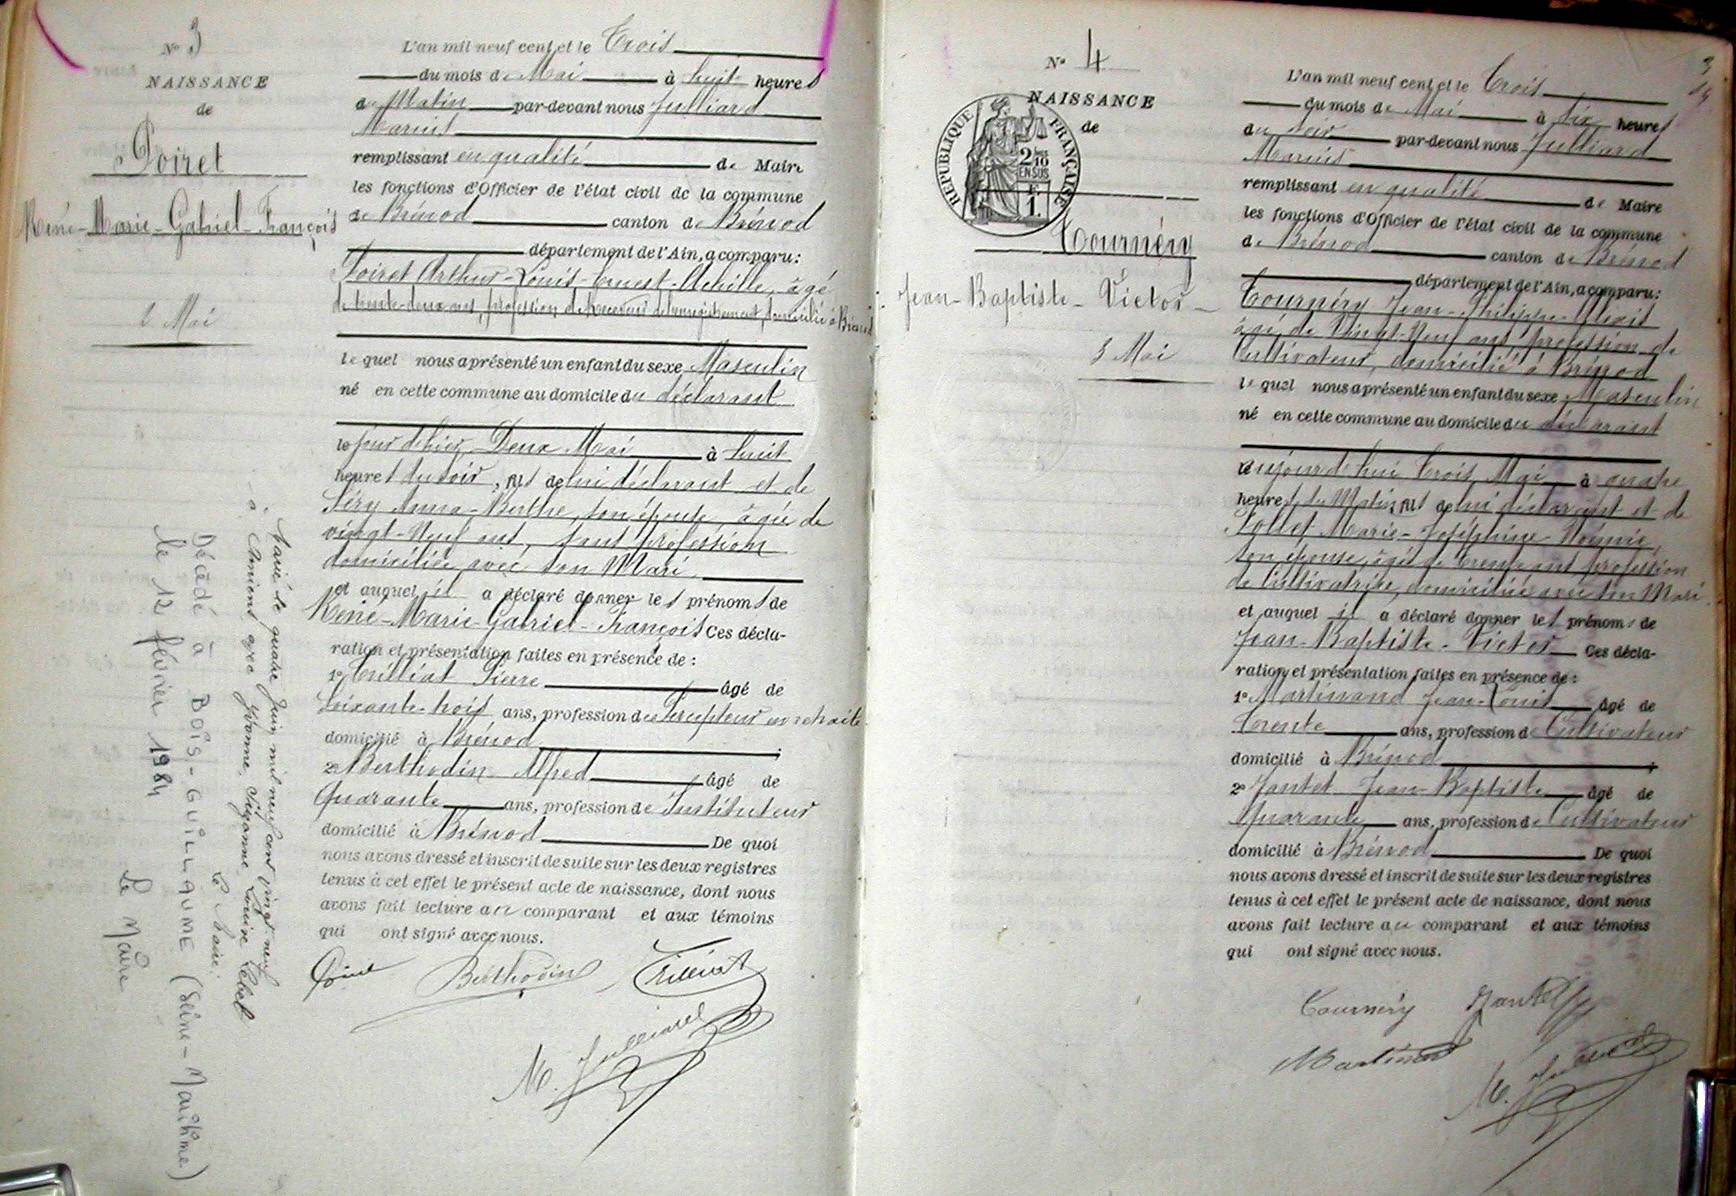 N° 3
NAISSANCE
de
Poiret
René-Marie-Gabriel-François
2 Mai
L'an mil neuf cent et le Trois
du mois de Mai à huit heures
du Matin par-devant nous Julliard
Marius
remplissant en qualité de Maire
les fonctions d'Officier de l'état civil de la commune
de Brénod canton de Brénod
département de l'Ain, a comparu:
Poiret Arthur-Louis-Ernest-Achille, âgé
de trente-deux ans, profession de Receveur de l'enregistrement, domicilié à Brénod
lequel nous a présenté un enfant du sexe Masculin
né en cette commune au domicile du déclarant
le jour d'hier, Deux Mai à huit
heures du soir, fils de lui déclarant et de
Anna-Berthe, son épouse, âgée de
vingt-Neuf ans, sans profession
domiciliée avec son Mari
et auquel il a déclaré donner les prénoms de
René-Marie-Gabriel-François Ces décla-
ration et présentation faites en présence de :
1° Trilliat Pierre âgé de
Soixante-trois ans, profession de Percepteur en retraite
domicilié à Brénod
2° Berthodin Alfred âgé de
Quarante ans, profession de Instituteur
domicilié à Brénod De quoi
nous avons dressé et inscrit de suite sur les deux registres
tenus à cet effet le présent acte de naissance, dont nous
avons fait lecture au comparant et aux témoins
qui ont signé avec nous.
Poiret Berthodin Trilliat
M. Julliard
Marié le quatre Juin mil neuf cent vingt neuf
à Amiens avec Yvonne, Suzanne, Louise Lebel
Le Maire:
Décédé à BOIS-GUILLAUME (Seine-Maritime)
le 12 février 1984
Le Maire
N° 4
NAISSANCE
de
REPUBLIQUE FRANÇAISE
2/10
EN SUS
F.
1.
Tournéry
Jean-Baptiste-Victor
3 Mai
3
L'an mil neuf cent et le Trois
du mois de Mai à six heures
du soir par-devant nous Julliard
Marius
remplissant en qualité de Maire
les fonctions d'Officier de l'état civil de la commune
de Brénod canton de Brénod
département de l'Ain, a comparu:
Tournéry Jean-Philippe-Alexis
âgé de Vingt-Neuf ans profession de
Cultivateur, domicilié à Brénod
lequel nous a présenté un enfant du sexe Masculin
né en cette commune au domicile du déclarant
aujourd'hui Trois Mai à quatre
heures du Matin, fils de lui déclarant et de
Marie-Joséphine-Noémie,
son épouse, âgée de trente ans profession
de Cultivatrice, domiciliée avec son Mari
et auquel il a déclaré donner les prénoms de
Jean-Baptiste-Victor Ces décla-
ration et présentation faites en présence de :
1° Martinand Jean-Louis âgé de
Trente ans, profession de Cultivateur
domicilié à Brénod
2° Jantet Jean-Baptiste âgé de
Quarante ans, profession de Cultivateur
domicilié à Brénod De quoi
nous avons dressé et inscrit de suite sur les deux registres
tenus à cet effet le présent acte de naissance, dont nous
avons fait lecture au comparant et aux témoins
qui ont signé avec nous.
Tournéry Jantet
Martinand
M. Julliard